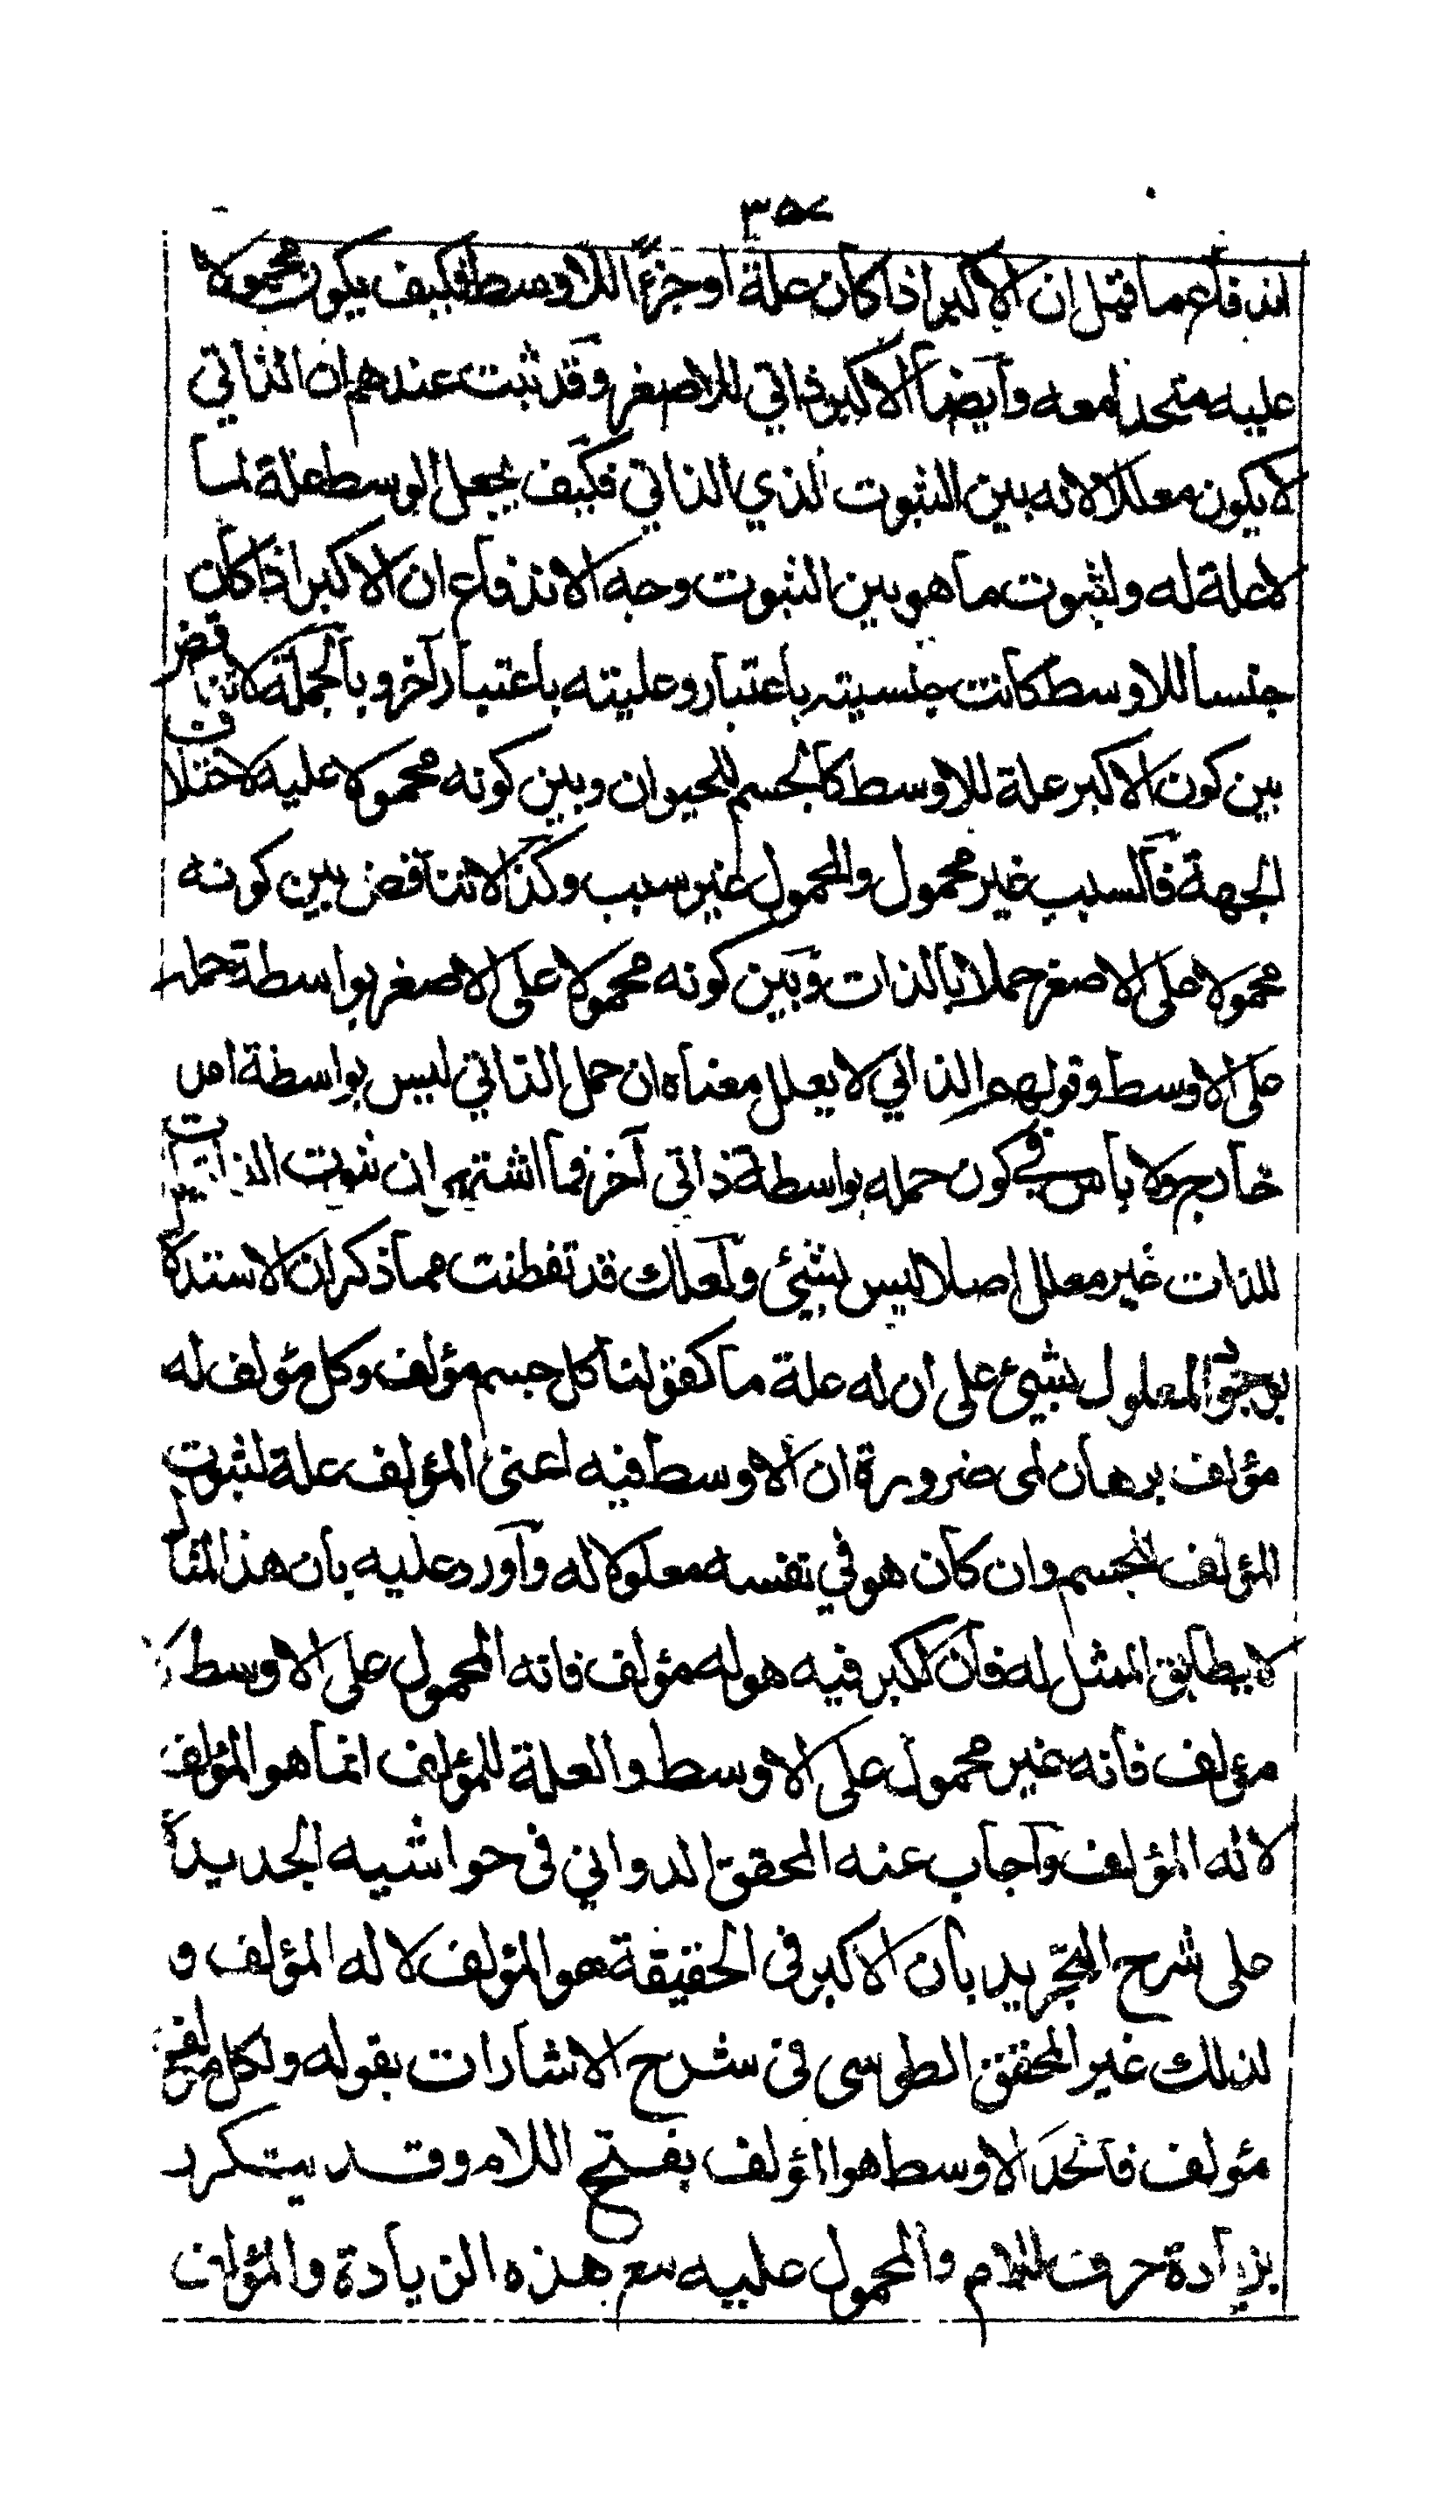 ٣٥٤
اندفاع ما قيل ان الاكبر اذا كان علة او جزءا للاوسط فكيف يكون محمولا
عليه متحدا معه وايضا الاكبر ذاتي للاصغر وقد ثبت عندهم ان الذاتي
لا يكون معللا لانه بين الثبوت لذي الذاتي فكيف يجعل الوسط علة لما
لا علة له ولثبوت ما هو بين الثبوت وجه الاندفاع ان الاكبر اذا كان
جنسا للاوسط كانت جنسيته باعتبار وعليته باعتبار آخر وبالجملة لا تناقض
بين كون الاكبر علة للاوسط كالجسم للحيوان وبين كونه محمولا عليه لاختلاف
الجهة فالسبب غير محمول والمحمول غير سبب وكذا لا تناقض بين كونه
محمولا على الاصغر حملا بالذات وبين كونه محمولا على الاصغر بواسطة حمله
على الاوسط وقولهم الذاتي لا يعلل معناه ان حمل الذاتي ليس بواسطة امر
خارج ولا بأس في كون حمله بواسطة ذاتي آخر فما اشتهر ان ثبوت الذاتيات
للذات غير معلل اصلا ليس بشئ ولعلك قد تفطنت مما ذكر ان الاستدلال
بوجود المعلول بشيئ على ان له علة ما كقولنا كل جسم مؤلف وكل مؤلف له
مؤلف برهان لمى ضرورة ان الاوسط فيه اعنى المؤلف علة لثبوت
المؤلف للجسم وان كان هو في نفسه معلولا له وآورد عليه بان هذا المثال
لا يطابق الممثل له فان الاكبر فيه هو له مؤلف فانه المحمول على الاوسط لا
مؤلف فانه غير محمول على الاوسط والعلة للمؤلف انما هو المؤلف
لا له المؤلف وآجاب عنه المحقق الدواني فى حواشيه الجديدة
على شرح التجريد بان الاكبر فى الحقيقة هو المؤلف لا له المؤلف و
لذلك غير المحقق الطوسى فى شرح الاشارات بقوله ولكل مؤلف
مؤلف فالحد الاوسط هو المؤلف بفتح اللام وقد يتكرر
بزيادة حرف اللام والمحمول عليه مع هذه الزيادة والمؤلف